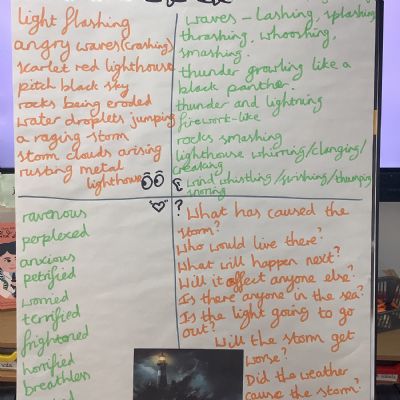 light flashing
angry waves (crashing)
scarlet red lighthouse
pitch black sky
rocks being eroded
water droplets jumping
a raging storm
storm clouds arising
rusting metal
lighthouse
waves - lashing, splashing
thrashing, whooshing,
smashing.
thunder growling like a
black panther.
thunder and lightning
firework-like
rocks smashing
lighthouse whirring/clanging/
creaking
wind whistling/swishing/thumping
ravenous
perplexed
anxious
petrified
worried
terrified
frightored
horrified
breathless
? What has caused the
storm?
Who would live there?
What will happen next?
Will it affect anyone else?
Is there anyone in the sea?
Is the light going to go
out?
Will the storm get
worse?
Did the weather
cause the storm?